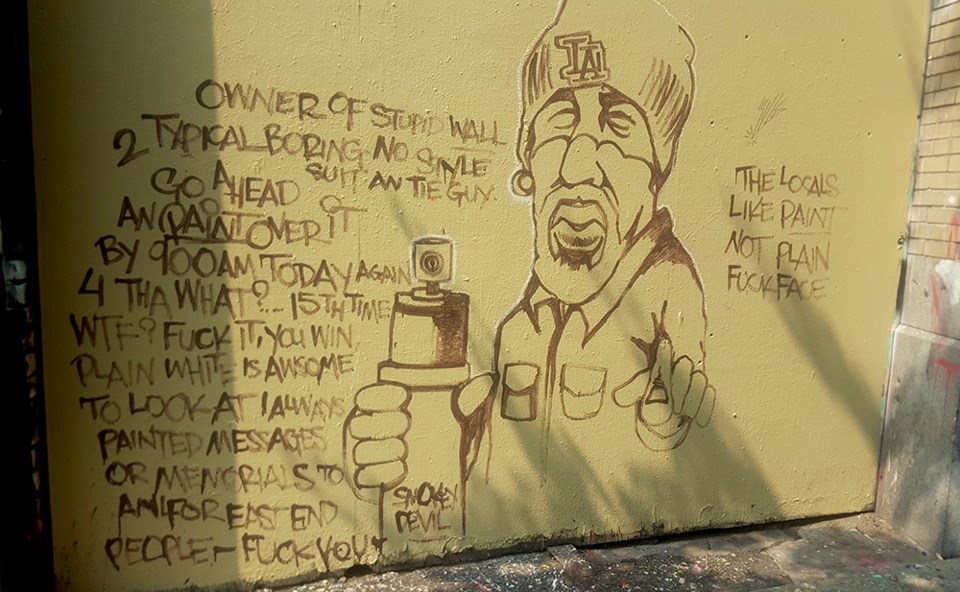 OWNER OF STUPID WALL
2 TYPICAL BORING NO STYLE
SUIT AN TIE GUY.
GO AHEAD
AN PAINT OVER IT
BY 900AM TODAY AGAIN
4 THA WHAT?... 15TH TIME
WTF? FUCK IT, YOU WIN
PLAIN WHITE IS AWSOME
TO LOOK AT I ALWAYS
PAINTED MESSAGES
OR MEMORIALS TO
AN FOR EAST END
PEOPLE - FUCK YOU!
LA
SMOKEY
DEVIL
THE LOCALS
LIKE PAINT
NOT PLAIN
FUCKFACE